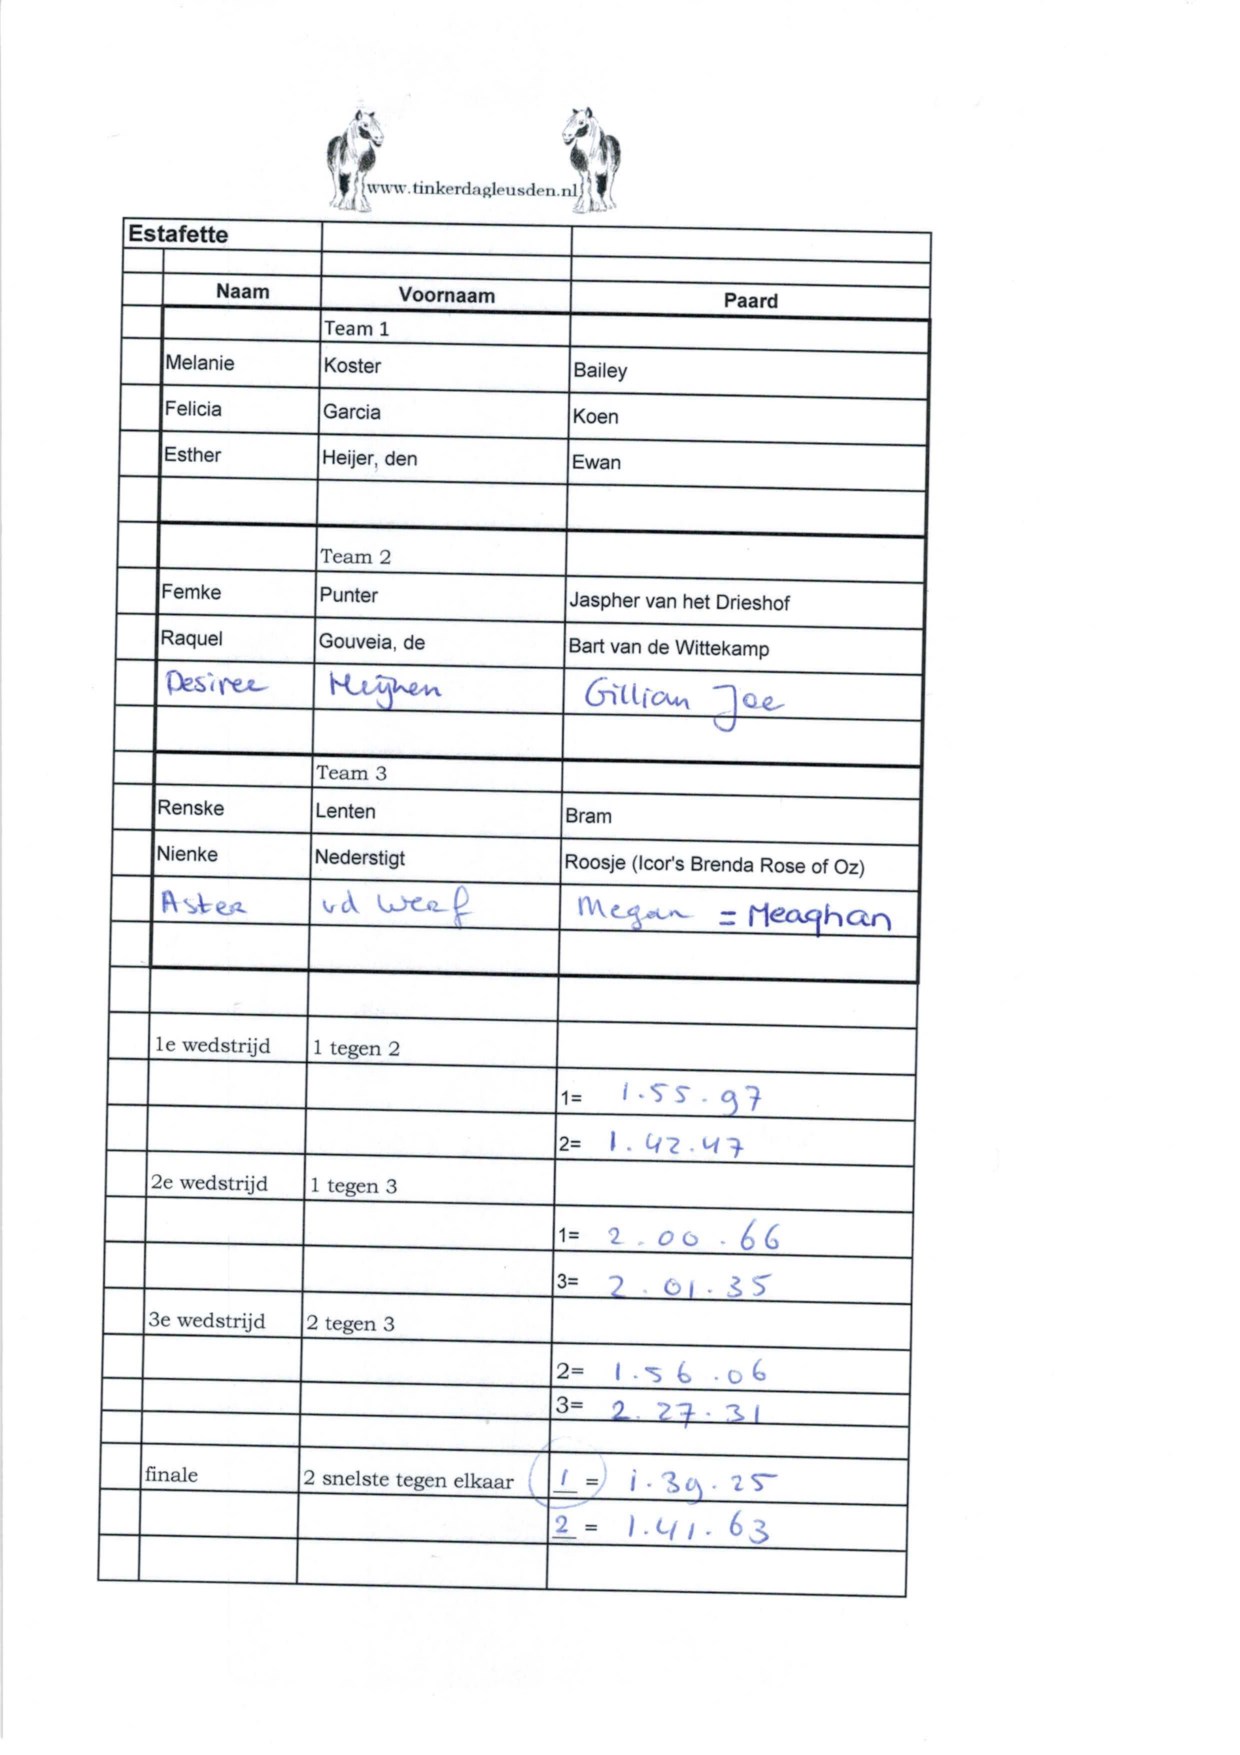 www.tinkerdagleusden.nl
Estafette
Naam Voornaam Paard
Team 1
Melanie Koster Bailey
Felicia Garcia Koen
Esther Heijer, den Ewan
Team 2
Femke Punter Jaspher van het Drieshof
Raquel Gouveia, de Bart van de Wittekamp
Desiree Meijnen Gillian Joe
Team 3
Renske Lenten Bram
Nienke Nederstigt Roosje (Icor's Brenda Rose of Oz)
Aster vd Werf Megan = Meaghan
1e wedstrijd 1 tegen 2
1= 1.55.97
2= 1.42.47
2e wedstrijd 1 tegen 3
1= 2.00.66
3= 2.01.35
3e wedstrijd 2 tegen 3
2= 1.56.06
3= 2.27.31
finale 2 snelste tegen elkaar 1 = 1.39.25
2 = 1.41.63